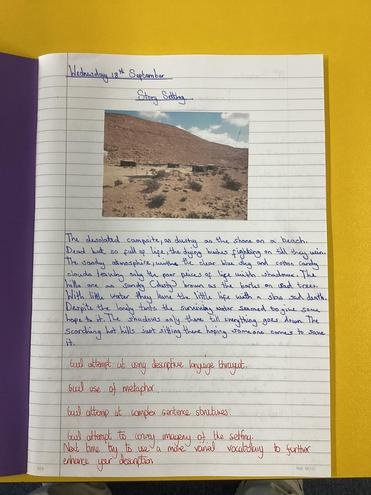 Wednesday 18th September
Story Setting
The desolated campsite, as dusty as the stone on a beach.
Dead but so full of life, the dying bushes fighting on till they win.
The sandy atmosphere, unlike the clear blue sky and cotton candy
clouds leaving only the poor pieces of life with shadows. The
hills are as sandy (dusty) brown as the barks on sad trees.
With little water they have the little life with a slow sad death.
Despite the lonely tents the surviving water seemed to give some
hope to it. The shadows only there till everything goes down. The
scorching hot hills just sitting there hoping someone comes to save
it.
Good attempt at using descriptive language througout.
Good use of metaphor.
Good attemp at complex sentence structures.
Good attempt to convey imagery of the setting.
Next time try to use a more varied vocabulary to further
enhance your description